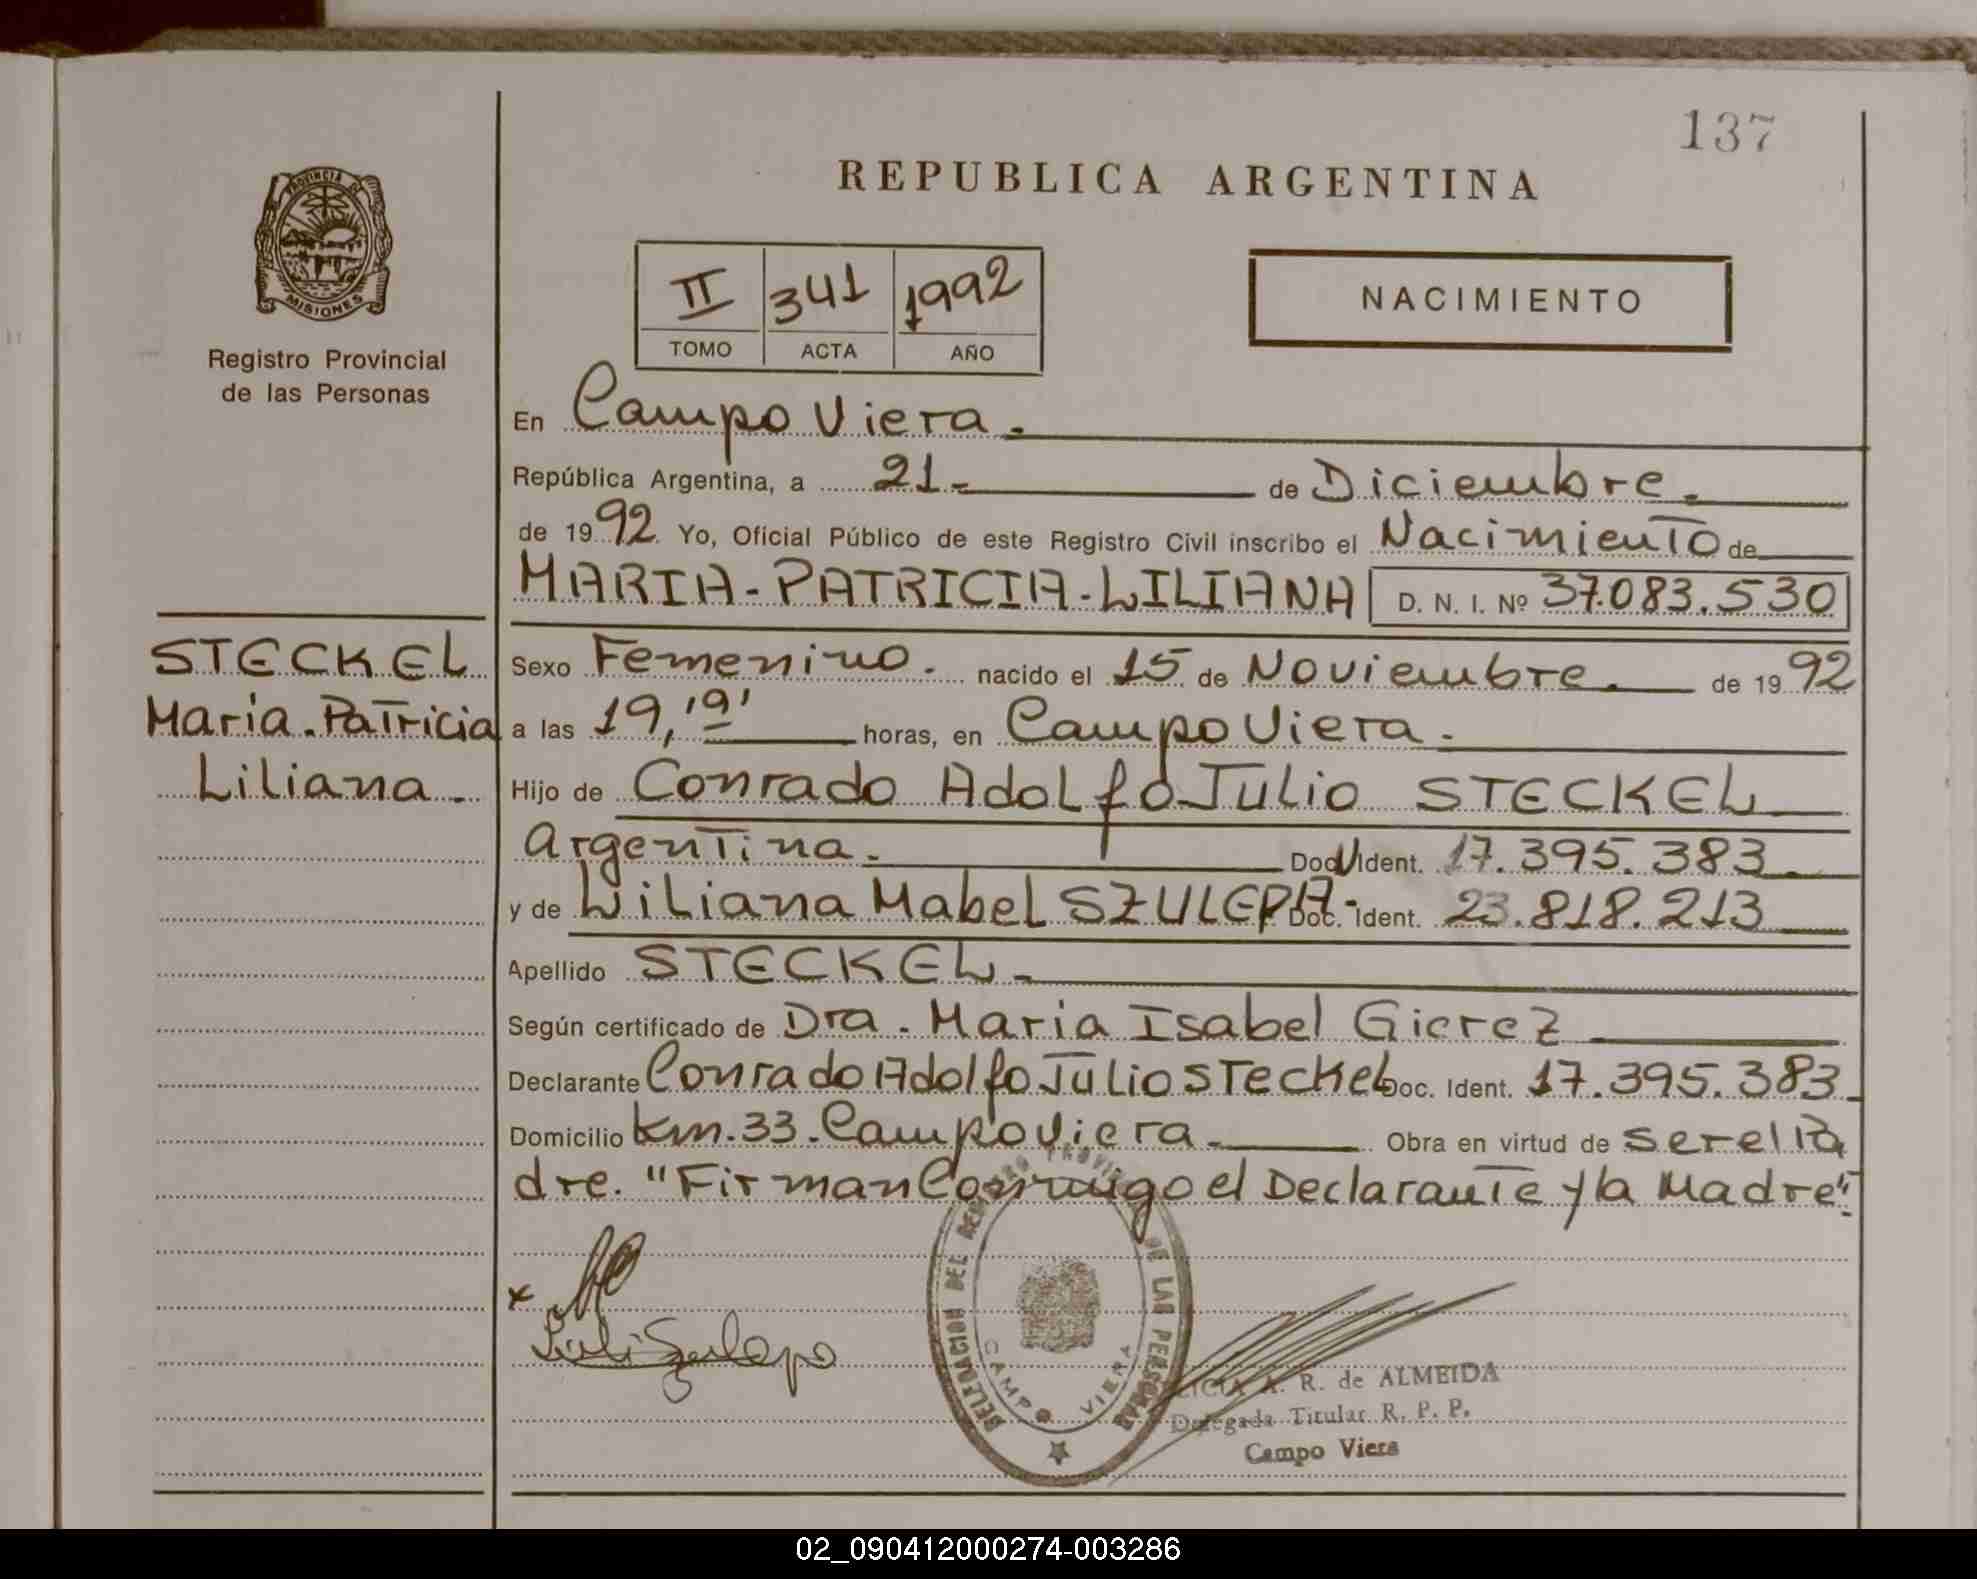 137
REPUBLICA ARGENTINA
PROVINCIA DE
MISIONES
Registro Provincial
de las Personas
II 341 1992
TOMO ACTA AÑO
NACIMIENTO
En Campo Viera.
República Argentina, a 21.- de Diciembre.
de 1992. Yo, Oficial Público de este Registro Civil inscribo el Nacimiento de
MARIA-PATRICIA-LILIANA D. N. I. Nº 37.083.530
STECKEL
Maria.Patricia
Liliana.
Sexo Femenino. nacido el 15 de Noviembre. de 1992
a las 19, horas, en Campo Viera.
Hijo de Conrado Adolfo Julio STECKEL
Argentina. Doc. Ident. 17.395.383
y de Liliana Mabel SZULEPA- Doc. Ident. 23.818.213
Apellido STECKEL-
Según certificado de Dra. Maria Isabel Gierez
Declarante Conrado Adolfo Julio STeckel Doc. Ident. 17.395.383
Domicilio km.33.Campo Viera. Obra en virtud de ser el Pa
dre. "Firman Conmigo el Declarante y la Madre"
x
DELEGACION DEL REGISTRO PROVINCIAL DE LAS PERSONAS
CAMPO VIERA
LICIA A. R. de ALMEIDA
Delegada Titular R. P. P.
Campo Viera
02_090412000274-003286